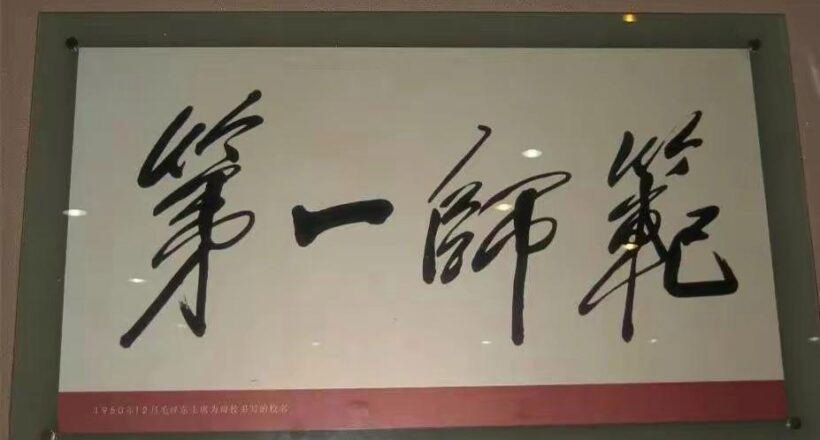 第一師範
1950年12月毛泽东主席为母校书写的校名